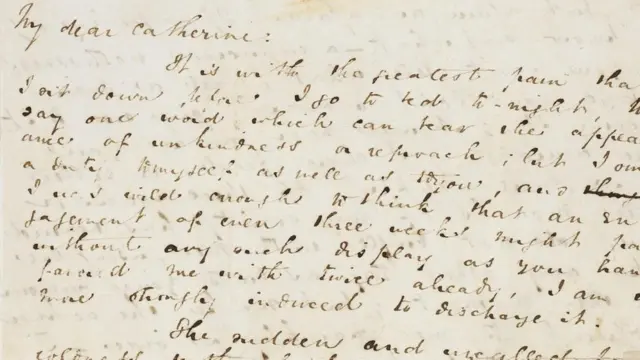 My dear Catherine:
It is with the greatest pain tha
I sit down, before I go to bed to-night, to
say one word which can bear the appear
ance of unkindness or reproach; but I owe
a duty to myself as well as to you, and
I was wild enough to think that an en
gagement of even three weeks might pa
without any such display as you hav
favored me with twice already, I am
more strongly induced to discharge it.
The sudden and uncalled for
coldness with